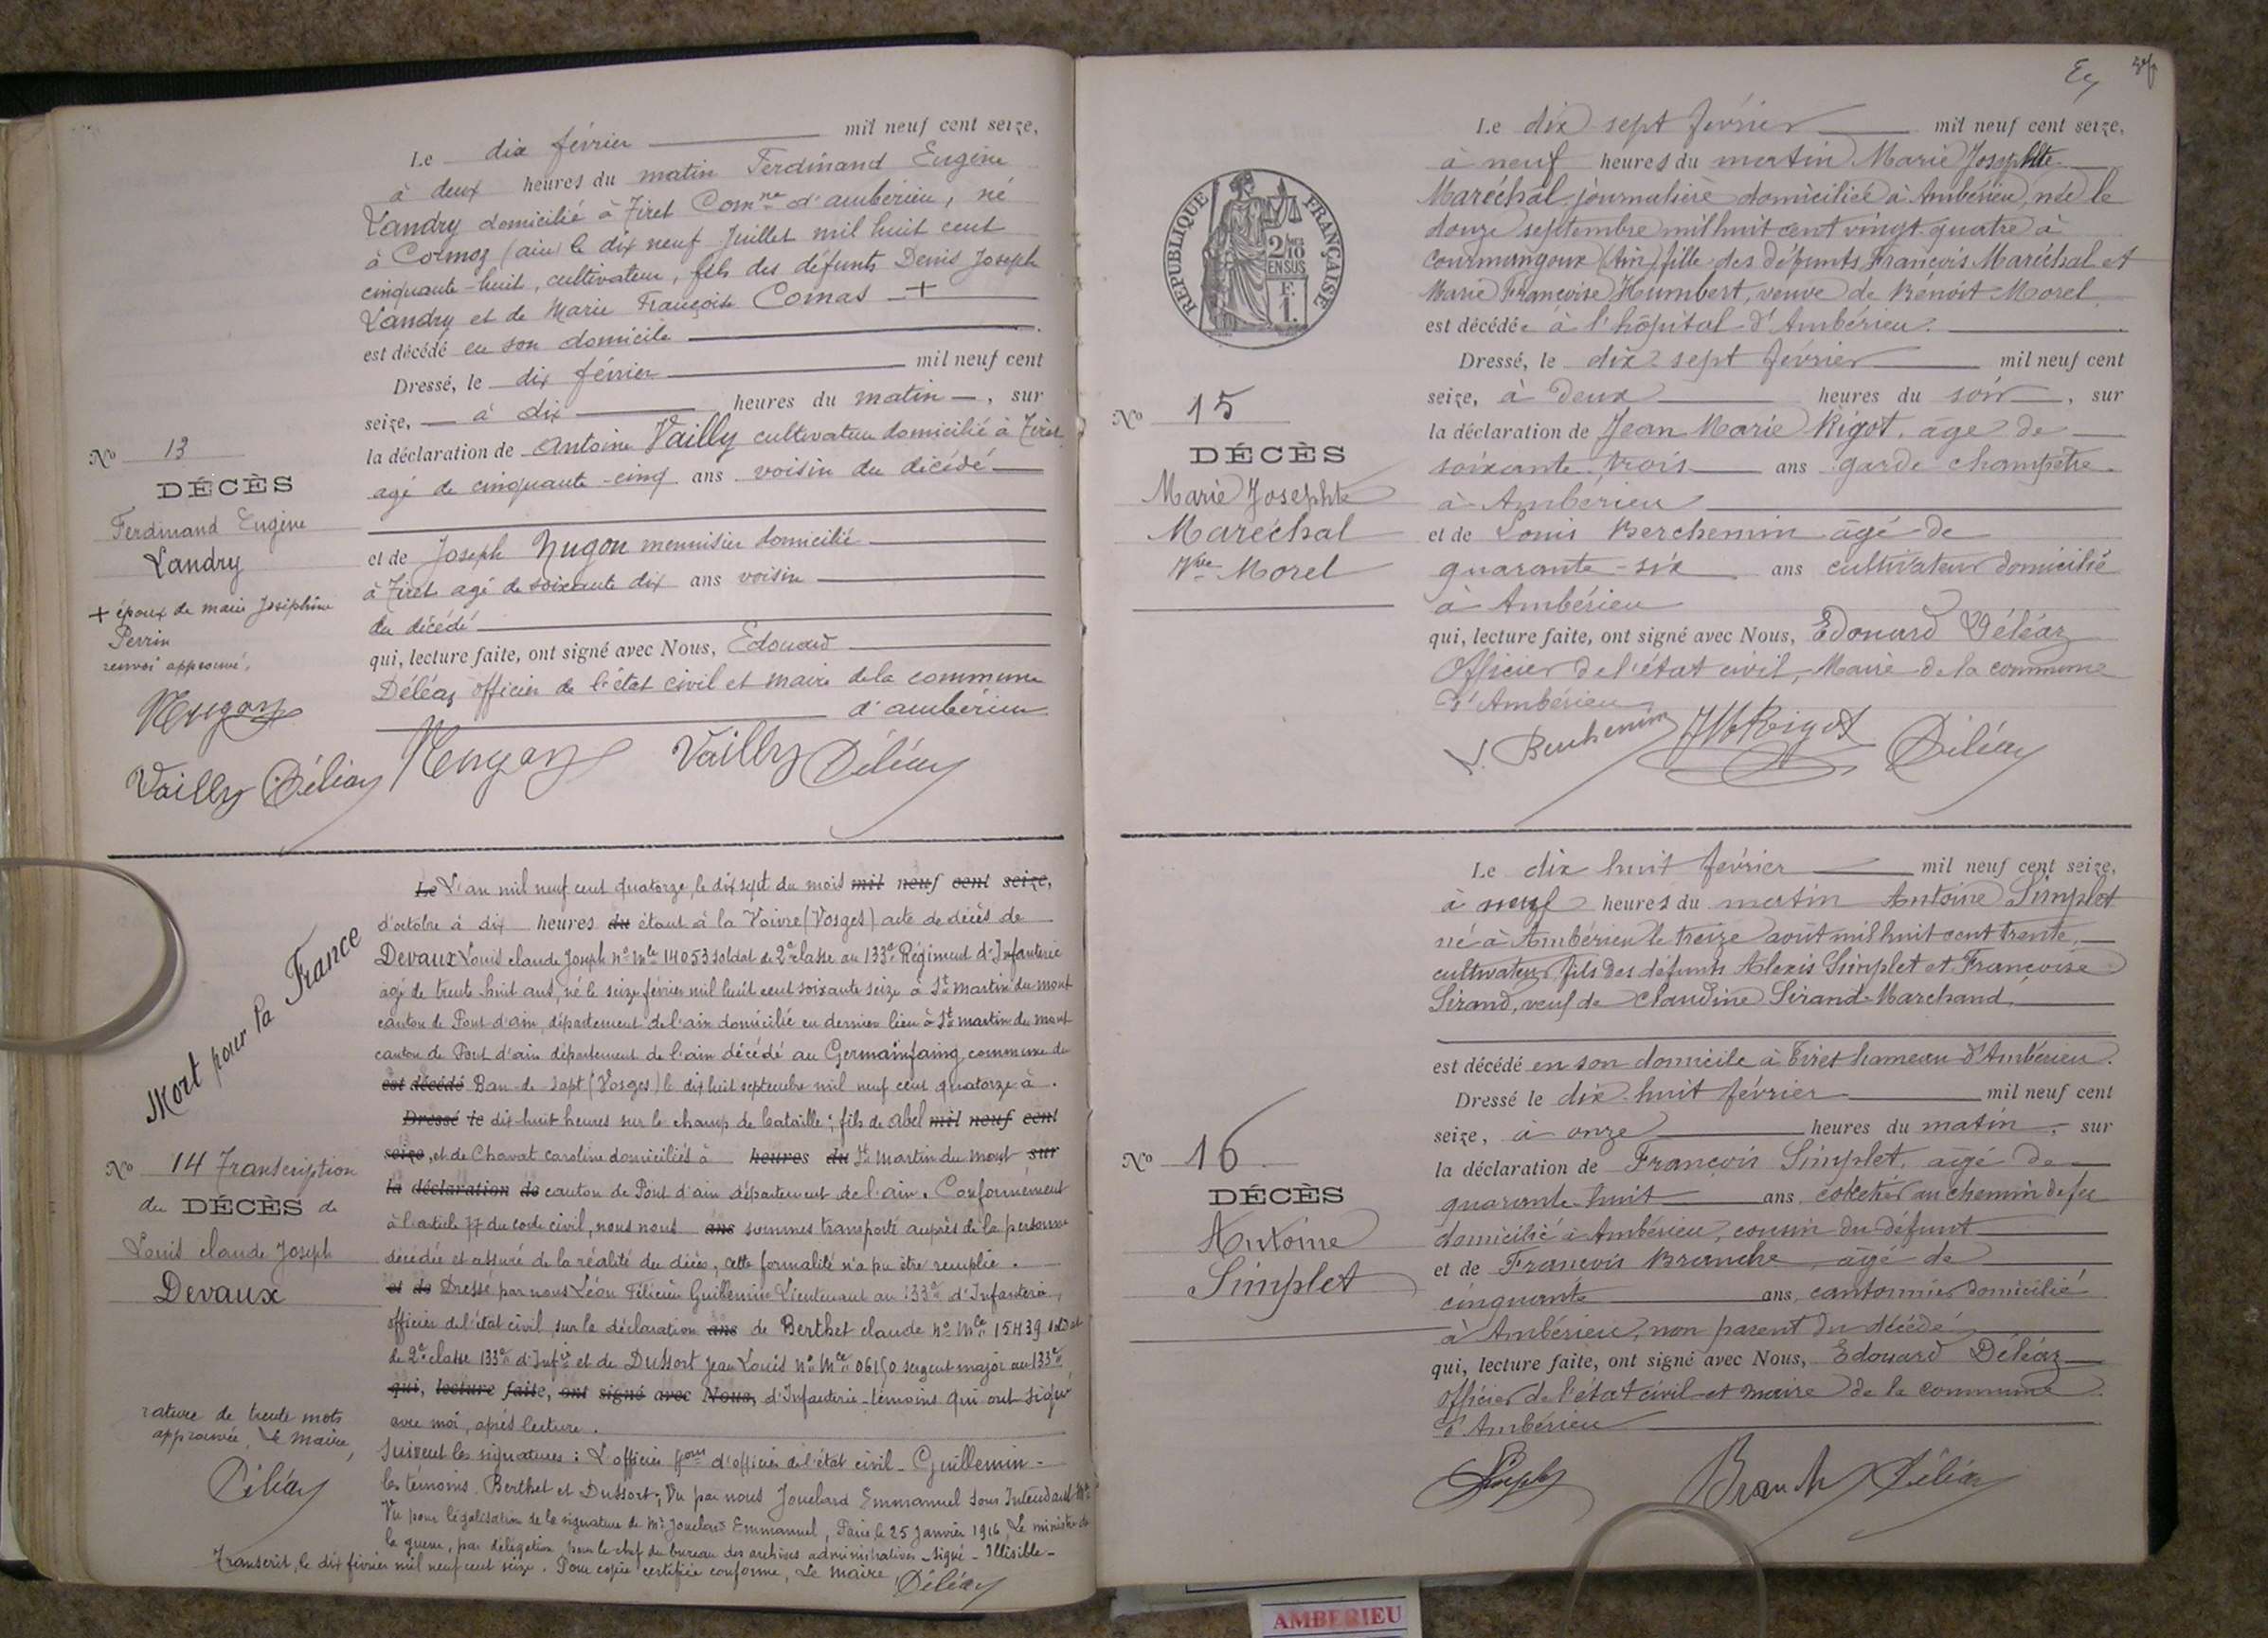 Le dix février mil neuf cent seize,
à deux heures du matin Ferdinand Eugène
Landry domicilié à Tiret Comne d'ambérieu, né
à Cormoz (ain) le dix neuf Juillet mil huit cent
cinquante-huit, cultivateur, fils des défunts Denis Joseph
Landry et de Marie Françoise Comas +
est décédé en son domicile
Dressé, le dix février mil neuf cent
seize, à dix heures du matin, sur
la déclaration de Antoine Vailly cultivateur domicilié à Tiret
agé de cinquante-cinq ans voisin du décédé
et de Joseph Nugon menuisier domicilié
à Tiret agé de soixante dix ans voisin
du décédé
qui, lecture faite, ont signé avec Nous, Edouard
Déléaz officier de l'état civil et maire de la commune
d'ambérieu
Nugon Vailly Déléaz
No 13
DÉCÈS
Ferdinand Eugène
Landry
+ époux de marie Joséphine
Perrin
renvoi approuvé,
Nugon
Vailly Déléaz
Le L'an mil neuf cent quatorze, le dix sept du mois mil neuf cent seize,
d'octobre à dix heures du étant à la Voivre (Vosges) acte de décès de
Devaux Louis claude Joseph No Mle 14053 soldat de 2e classe au 133e Régiment d'Infanterie
agé de trente huit ans, né le seize février mil huit cent soixante seize à St martin du mont
canton de Pont d'ain, département de l'ain domicilié en dernier lieu à St martin du mont
canton de Pont d'ain département de l'ain décédé au Germainfaing commune de
est décédé Ban-de-Sapt (Vosges) le dix huit septembre mil neuf cent quatorze à
Dressé le dix-huit heures sur le champ de bataille; fils de Abel mil neuf cent
seize, et de Chavat caroline domiciliés à heures du St Martin du Mont sur
la déclaration de canton de Pont d'ain département de l'ain. Conformément
à l'article 77 du code civil, nous nous ans sommes transporté auprès de la personne
décédée et assuré de la réalité du décès, cette formalité n'a pu être remplie.
et de Dressé par nous Léon Félicien Guillemin Lieutenant au 133e d'Infanterie,
officier de l'état civil, sur la déclaration ans de Berthet claude No Mle 15439 soldat
de 2e classe 133e d'Infie et de Dussort Jean Louis No Mle 06150 sergent major au 133e
qui, lecture faite, ont signé avec Nous, d'Infanterie-témoins qui ont signé
avec moi, après lecture.
Suivent les signatures: L'officier d'officier de l'état civil - Guillemin -
les temoins Berthet et Dussort; Vu par nous Jouclard Emmanuel Sous Intendant
Vu pour légalisation de la signature de Mr Jouclard Emmanuel, Paris, le 25 Janvier 1916, Le ministre de
la guerre, par délégation, pour le chef du bureau des archives administratives - signé - Illisible -
Transcrit, le dix février mil neuf cent seize. Pour copie certifiée conforme, Le Maire, Déléaz
Mort pour la France
No 14 Transcription
du DÉCÈS de
Louis claude Joseph
Devaux
rature de trente mots
approuvée, Le Maire,
Déléaz
Le dix sept février mil neuf cent seize,
à neuf heures du matin Marie Josephte
Maréchal journalière domiciliée à Ambérieu, née le
douze septembre mil huit cent vingt quatre à
courmangoux (Ain) fille des défunts François Maréchal et
Marie Françoise Humbert, veuve de Benoît Morel
est décédée à l'hôpital d'Ambérieu.
Dressé, le dix sept février mil neuf cent
seize, à deux heures du soir, sur
la déclaration de Jean Marie Rigot, âgé de
soixante trois ans garde champêtre
à Ambérieu
et de Louis Berchemin âgé de
quarante-six ans cultivateur domicilié
à Ambérieu
qui, lecture faite, ont signé avec Nous, Edouard Déléaz
Officier de l'état civil, Maire de la commune
d'Ambérieu
L. Berchemin JM Rigot Déléaz
RÉPUBLIQUE FRANÇAISE
2/10
EN SUS
F.
1.
No 15
DÉCÈS
Marie Josephte
Maréchal
Vve Morel
Le dix huit février mil neuf cent seize,
à neuf heures du matin Antoine Simplet
né à Ambérieu le treize août mil huit cent trente,
cultivateur, fils des défunts Alexis Simplet et Françoise
Sirand, veuf de Claudine Sirand-Marchand,
est décédé en son domicile à Tiret hameau d'Ambérieu.
Dressé le dix-huit février mil neuf cent
seize, à onze heures du matin, sur
la déclaration de François Simplet, âgé de
quarante-huit ans, au chemin de fer
domicilié à Ambérieu, cousin du défunt
et de François Branche, âgé de
cinquante ans, cantonnier domicilié
à Ambérieu, non parent du décédé
qui, lecture faite, ont signé avec Nous, Edouard Déléaz
Officier de l'état civil et maire de la commune
d'Ambérieu
Simplet Branche Déléaz
No 16
DÉCÈS
Antoine
Simplet
AMBERIEU